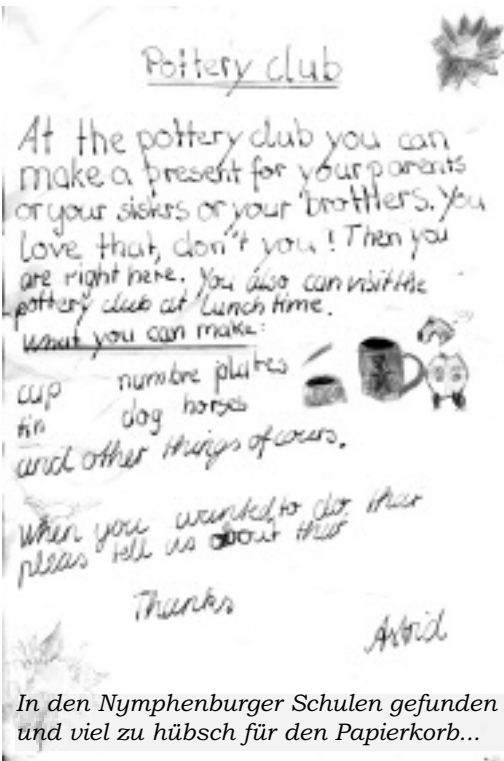 Pottery club
At the pottery club you can
make a present for your parents
or your sisters or your brothers. You
love that, don't you! Then you
are right here. You also can visit the
pottery club at lunch time.
What you can make:
cup numbre plates
tin dog horses
and other things of cours.
When you wanted to do that
pleas tell us about that
Thanks
Astrid
In den Nymphenburger Schulen gefunden
und viel zu hübsch für den Papierkorb...